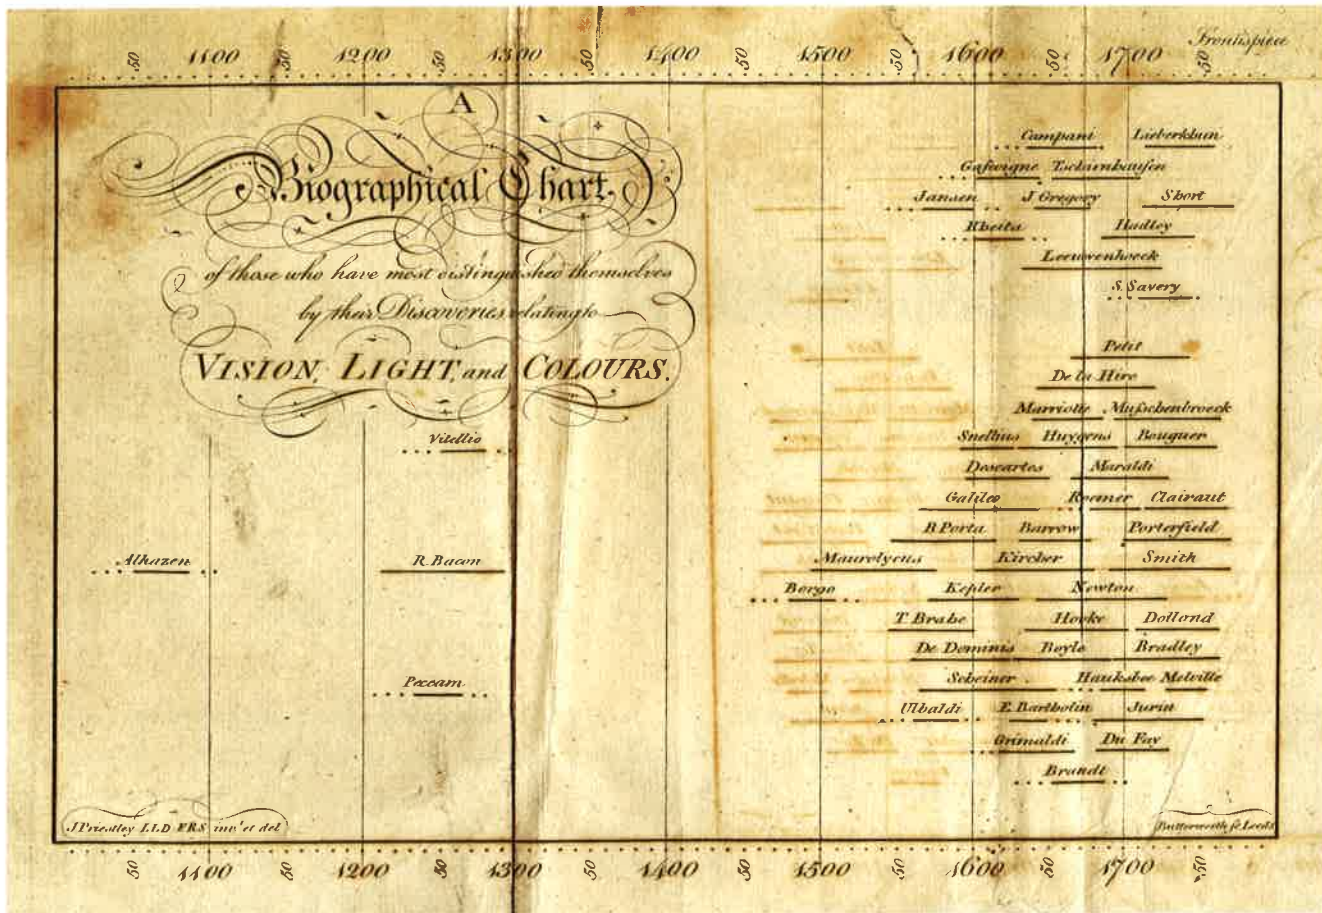 Frontispiece
50 1100 50 1200 50 1300 50 1400 50 1500 50 1600 50 1700 50
A
Biographical Chart
of those who have most distinguished themselves
by their Discoveries relating to
VISION, LIGHT, and COLOURS.
Campani Lieberkhun
Gascoigne Tschirnhausen
Jansen J Gregory Short
Rheita Hadley
Leeuwenhoeck
S. Savery
Petit
De la Hire
Marriotte Muſschenbroeck
Vitellio Snellius Huygens Bouguer
Descartes Maraldi
Galileo Roemer Clairaut
B Porta Barrow Porterfield
Alhazen R. Bacon Maurolycus Kircher Smith
Borgo Kepler Newton
T. Brahe Hooke Dollond
De Dominis Boyle Bradley
Peccam Scheiner Hauksbee Melville
Ulbaldi E. Bartholin Jurin
Grimaldi Du Fay
Brandt
J Priestley LLD FRS inv.t et del
Butterworth sc Leeds
50 1100 50 1200 50 1300 50 1400 50 1500 50 1600 50 1700 50